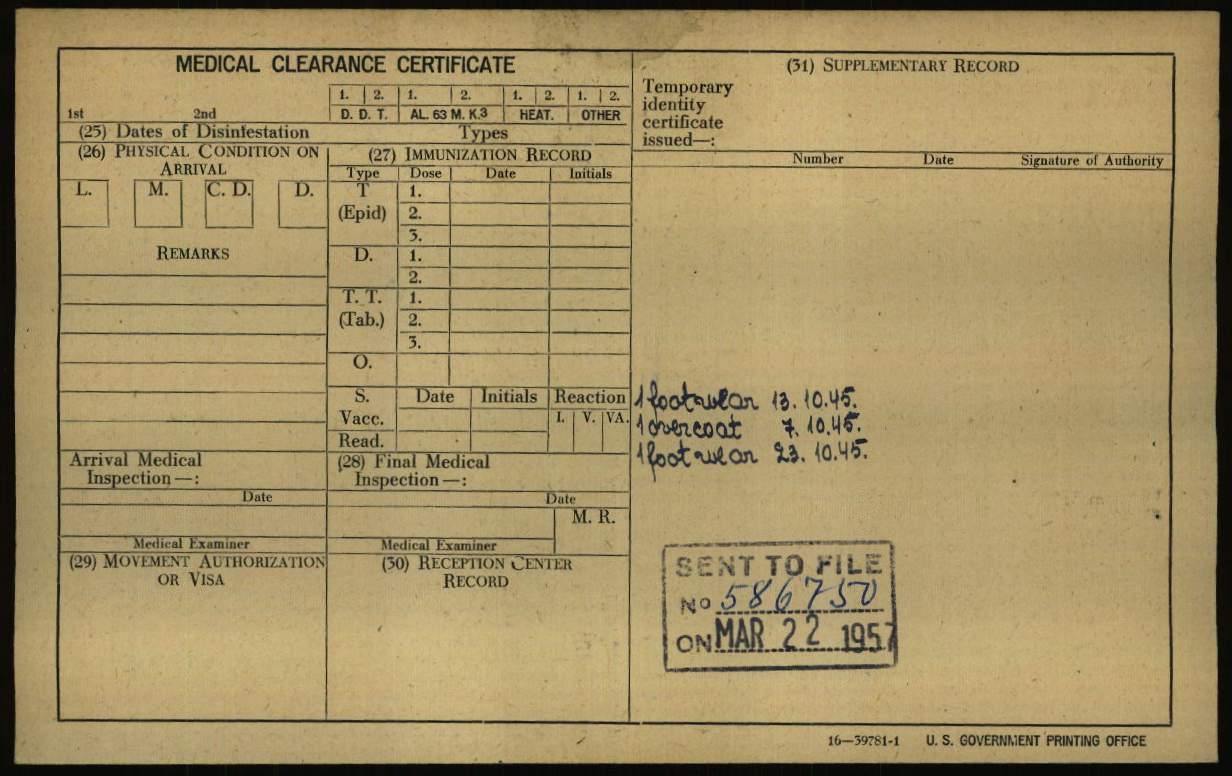 MEDICAL CLEARANCE CERTIFICATE
1. 2. 1. 2. 1. 2. 1. 2.
1st 2nd D. D. T. AL. 63 M. K.3 HEAT. OTHER
(25) Dates of Disinfestation Types
(26) PHYSICAL CONDITION ON
ARRIVAL
L. M. C. D. D.
REMARKS
(27) IMMUNIZATION RECORD
Type Dose Date Initials
T 1.
(Epid) 2.
3.
D. 1.
2.
T. T. 1.
(Tab.) 2.
3.
O.
S. Date Initials Reaction
Vacc. I. V. VA.
Read.
Arrival Medical
Inspection—:
Date
Medical Examiner
(28) Final Medical
Inspection—:
Date
M. R.
Medical Examiner
(29) MOVEMENT AUTHORIZATION
OR VISA
(30) RECEPTION CENTER
RECORD
(31) SUPPLEMENTARY RECORD
Temporary
identity
certificate
issued—:
Number Date Signature of Authority
1 footwear 13. 10.45.
1 overcoat 7. 10.45.
1 footwear 23. 10.45.
SENT TO FILE
No 586750
ON MAR 22 1957
16—39781-1 U. S. GOVERNMENT PRINTING OFFICE